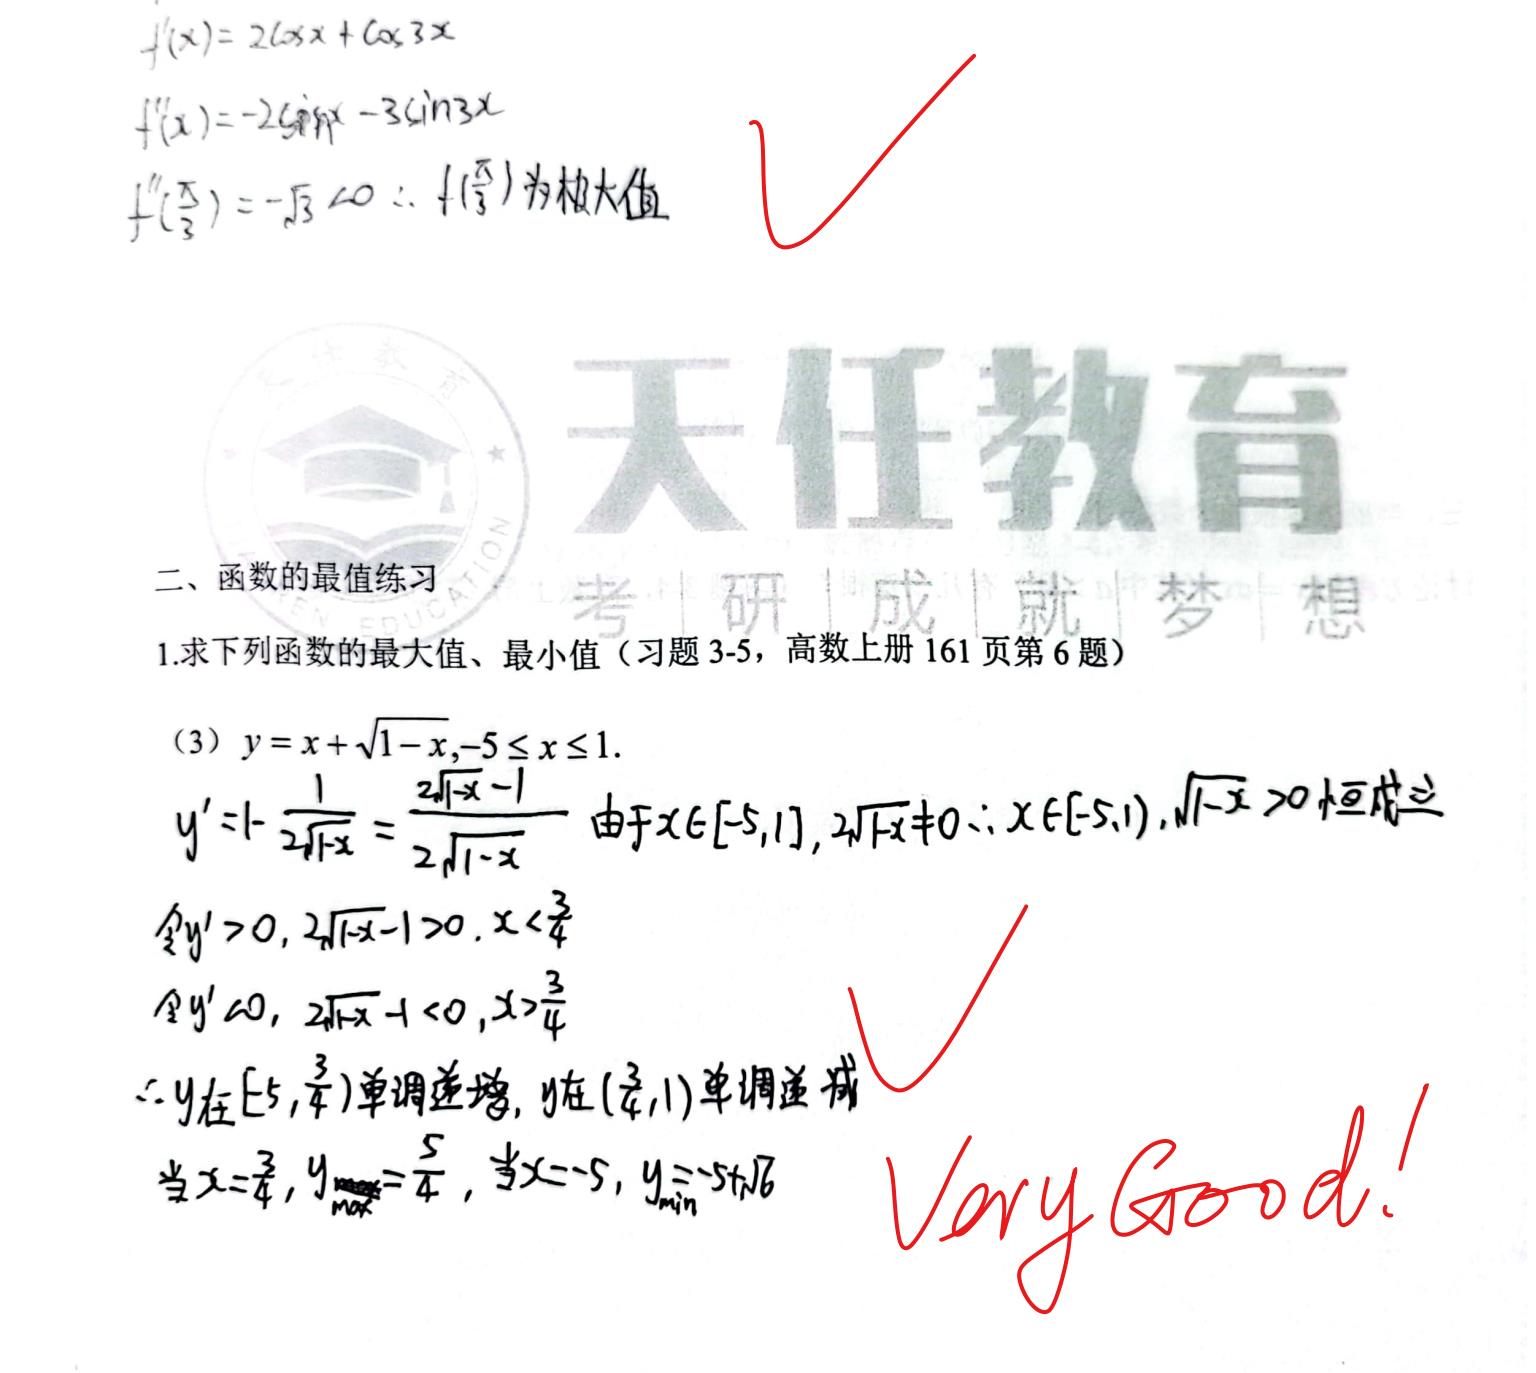 f'(x) = 2cosx + cos3x
f''(x) = -2sinx - 3sin3x
f''(π/3) = -√3 <0 ∴ f(π/3)为极大值
天任教育
天任教育
TIANREN EDUCATION
考|研|成|就|梦|想
二、函数的最值练习
1.求下列函数的最大值、最小值（习题 3-5，高数上册 161 页第 6 题）
（3）y = x + √(1-x), -5 ≤ x ≤ 1.
y' = 1 - 1/(2√(1-x)) = (2√(1-x) - 1)/(2√(1-x)) 由于x∈[-5,1], 2√(1-x)≠0 ∴ x∈[-5,1), √(1-x) >0 恒成立
令y'>0, 2√(1-x) -1>0. x< 3/4
令y'<0, 2√(1-x) -1<0, x> 3/4
∴ y在[-5, 3/4)单调递增, y在(3/4,1)单调递减
当x= 3/4, ymax = 5/4, 当x=-5, ymin = -5+√6
Very Good!